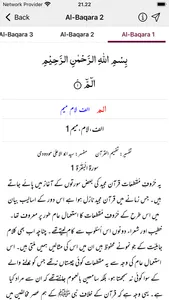 Network Provider 21.22
Al-Baqara 2
Al-Baqara 3 Al-Baqara 2 Al-Baqara 1
بِسْمِ اللّٰهِ الرَّحْمٰنِ الرَّحِيْمِ
الٓمّٓ ۚ﴿۱﴾
الم الف لام میم
الف، لام، میم 1
تفسیر: تفہیم القرآن مفسر: سید ابو الاعلیٰ مودودی
سورة الْبَقَرَة 1
یہ حروف مقطعات قرآن مجید کی بعض سورتوں کے آغاز میں پائے جاتے
ہیں۔ جس زمانے میں قرآن مجید نازل ہوا ہے اس دور کے اسالیب بیان
میں اس طرح کے حروف مقطعات کا استعمال عام طور پر معروف تھا۔
خطیب اور شعراء دونوں اس اسلوب سے کام لیتے تھے۔ چنانچہ اب بھی کلام
جاہلیت کے جو نمونے محفوظ ہیں ان میں اس کی مثالیں ہمیں ملتی ہیں۔ اس
استعمال عام کی وجہ سے یہ مقطعات کوئی چیستاں نہ تھے جس کو بولنے والے
کے سوا کوئی نہ سمجھتا ہو، بلکہ سامعین بالعموم جانتے تھے کہ ان سے مراد کیا
ہے۔ یہی وجہ ہے کہ قرآن کے خلاف نبی ﷺ کے ہم عصر